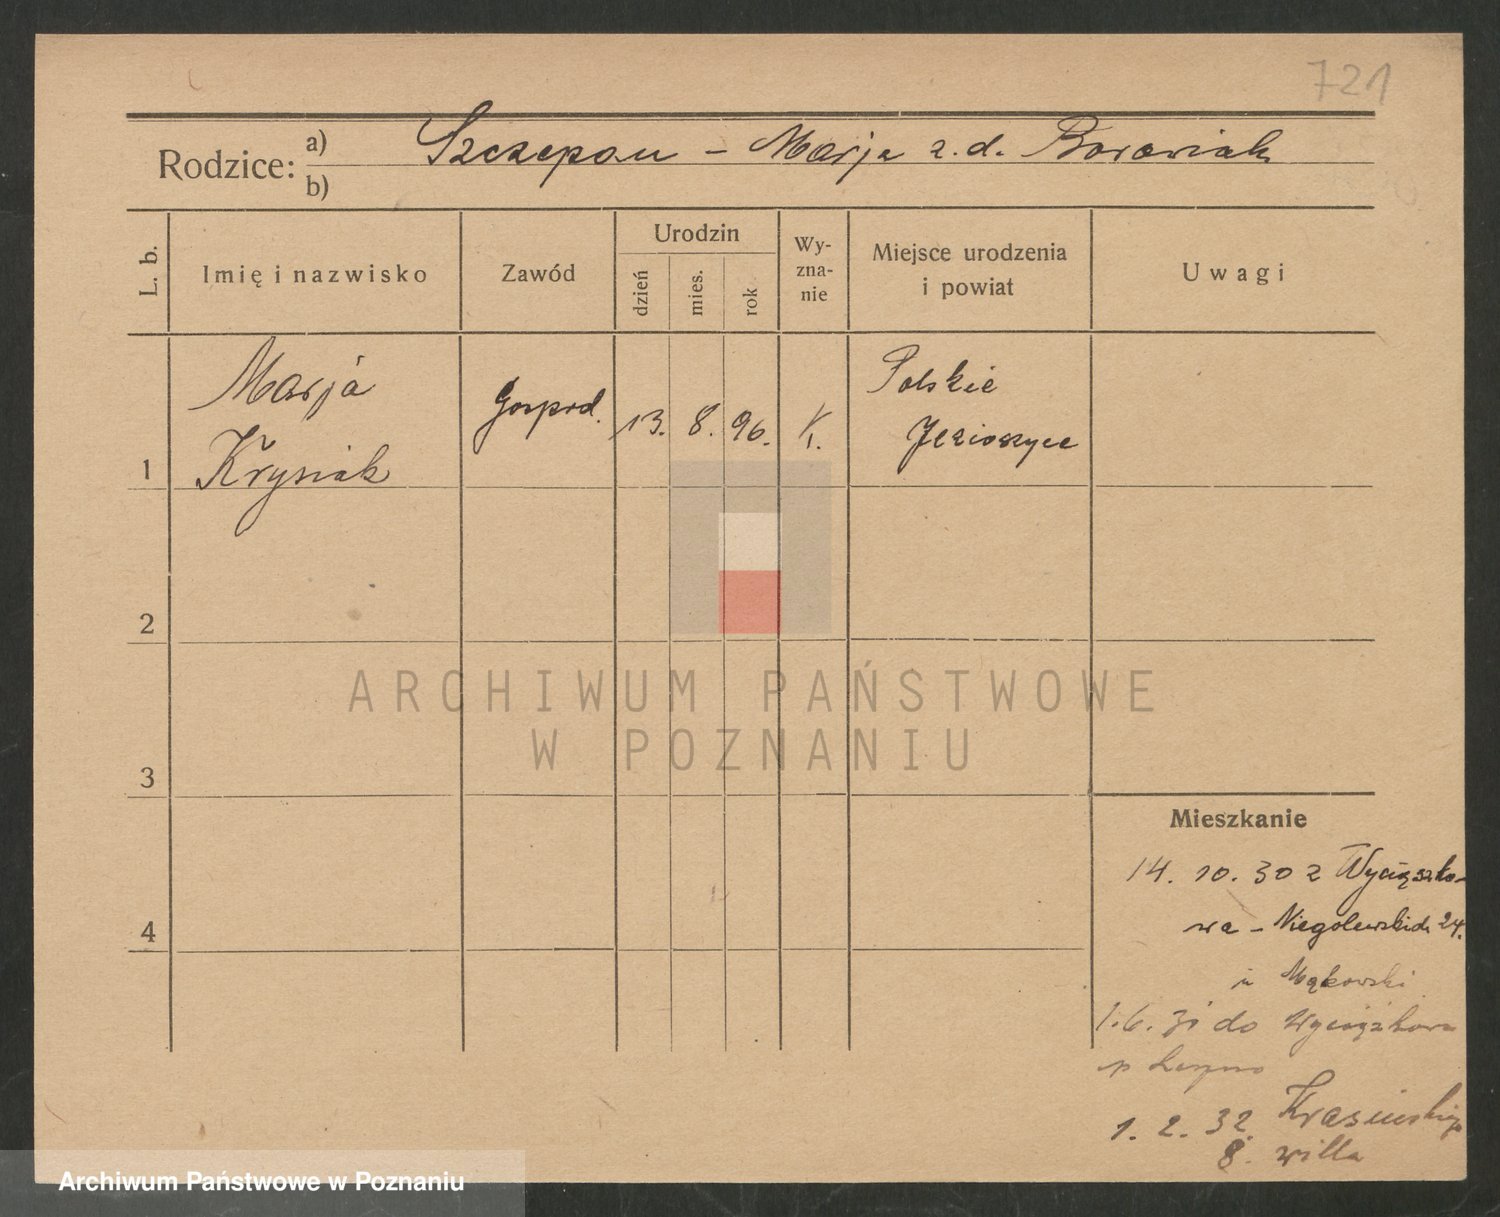 721
Rodzice: a) Szczepan – Marja z.d. Borowiak
b)
L. b. Imię i nazwisko Zawód Urodzin dzień mies. rok Wy-zna-nie Miejsce urodzenia i powiat Uwagi
1 Marja Krysiak Gospod. 13. 8. 96. Polskie Jeziorzyce
2
ARCHIWUM PAŃSTWOWE
W POZNANIU
3
Mieszkanie
14. 10. 30 z Wyciązko-
wa – Niegolewskich 24.
4
u Mąkowski
1.6. 31 do Wyciążkowa
p
1. 2. 32. Krasińskiego
8. willa
Archiwum Państwowe w Poznaniu